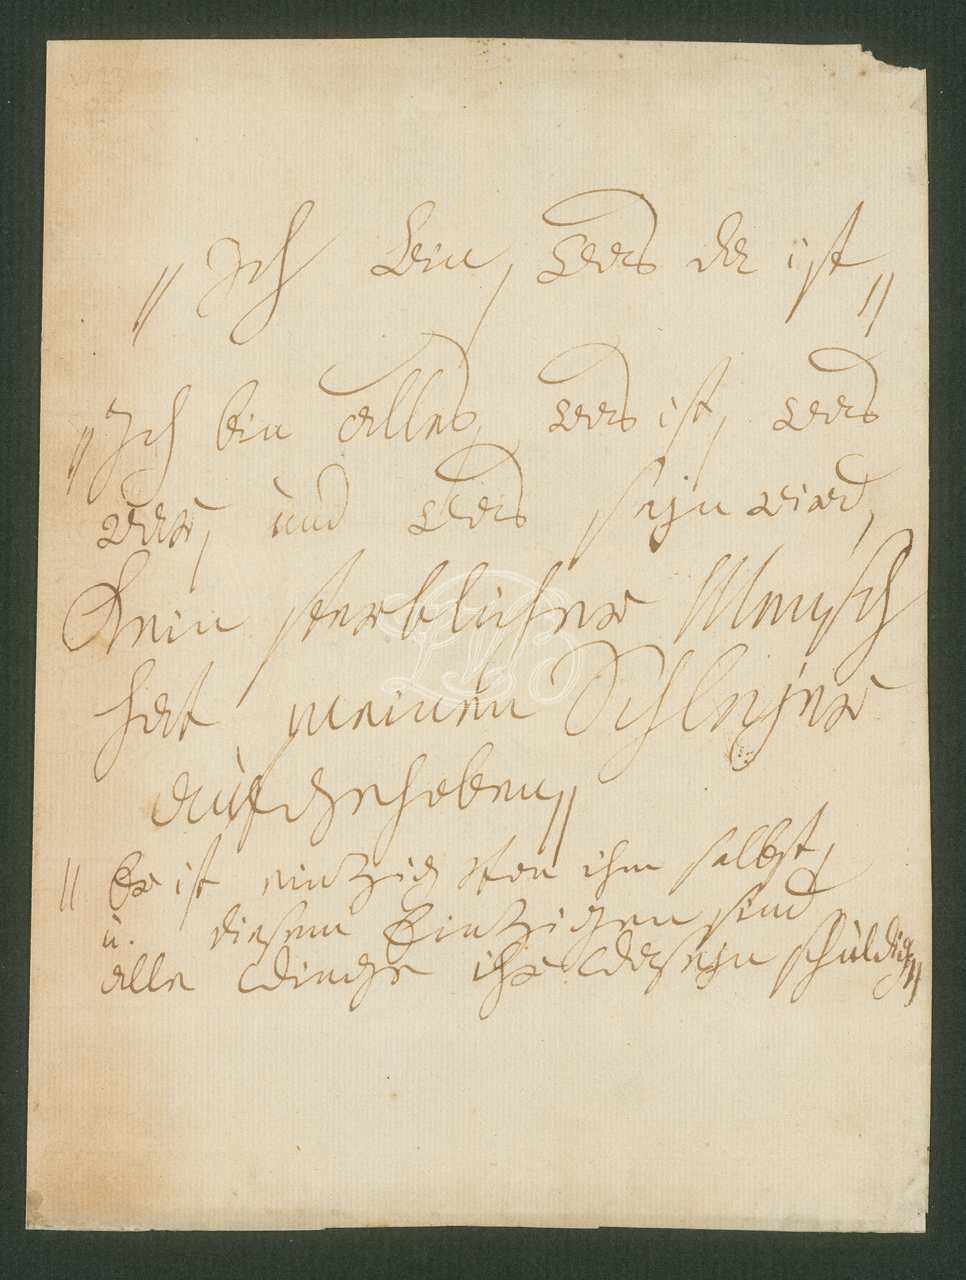 // Ich bin, was da ist //
// Ich bin alles, was ist, was
war, und was seyn wird,
Kein sterblicher Mensch
hat meinen Schleÿer
aufgehoben //
// Er ist einzig von ihm selbst,
u. diesem Einzigen sind
alle Dinge ihr Daseyn schuldig //